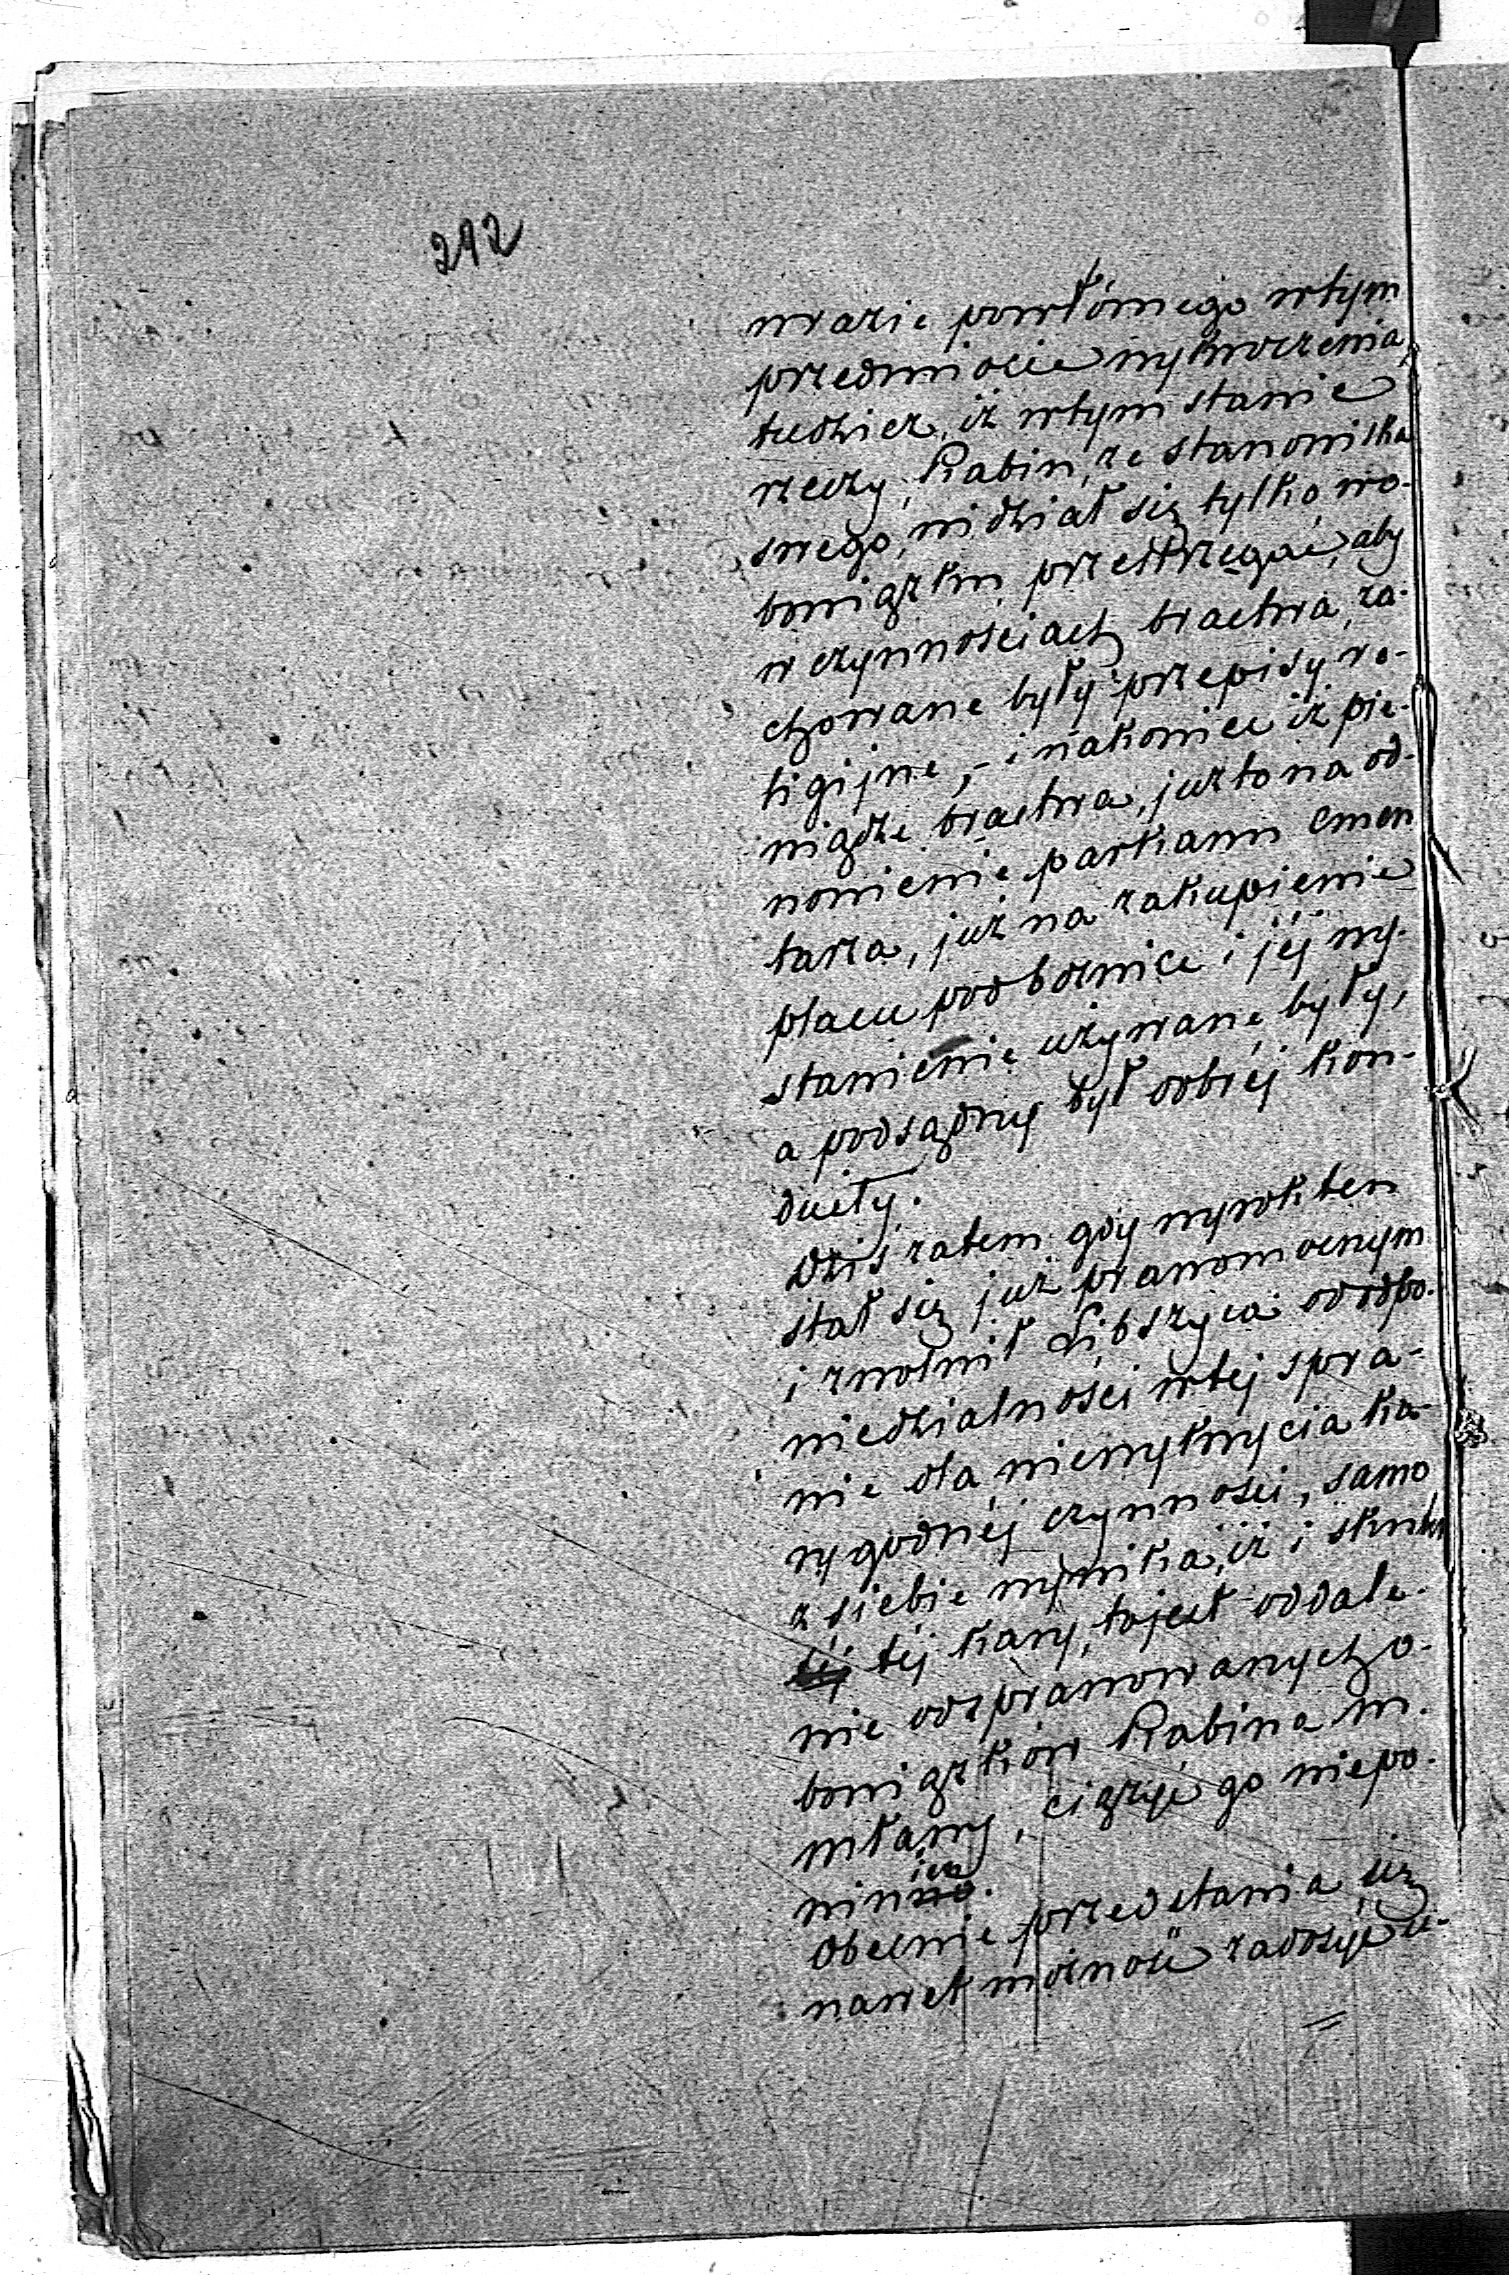 212
wrazie powtórnego wtym
przedmiocie wykroczenia,
tudzież, iż wtym stanie
rzeczy, Rabin, ze stanowiska
swego, widział się tylko wo-
bowiązku przestrzegać, aby
w czynnościach bractwa, za-
chowane były przepisy re-
ligijne, - i nakoniec iż pie-
niądze bractwa, już to na od-
nowienie parkanu cmen
tarza, już na zakupienie
placu pod bożnice i jéj wy-
stawienie używane były,
a podsądny był dobréj kon-
duity.
Dziś zatem gdy wyrok ten
stał się już prawomocnym
i zwolnił Libszyca od odpo-
wiedzialności wtéj spra-
wie dla niewykrycia ka-
rygodnéj czynności, samo
z siebie wynika, iż i skutki
téj téj kary, to jest oddale-
nie od sprawowanych o-
bowiązków Rabina w
Mławy, ciążyć go niepo-
winnien.
Obecnie przedstawia się
nawet możność zadosyć u-